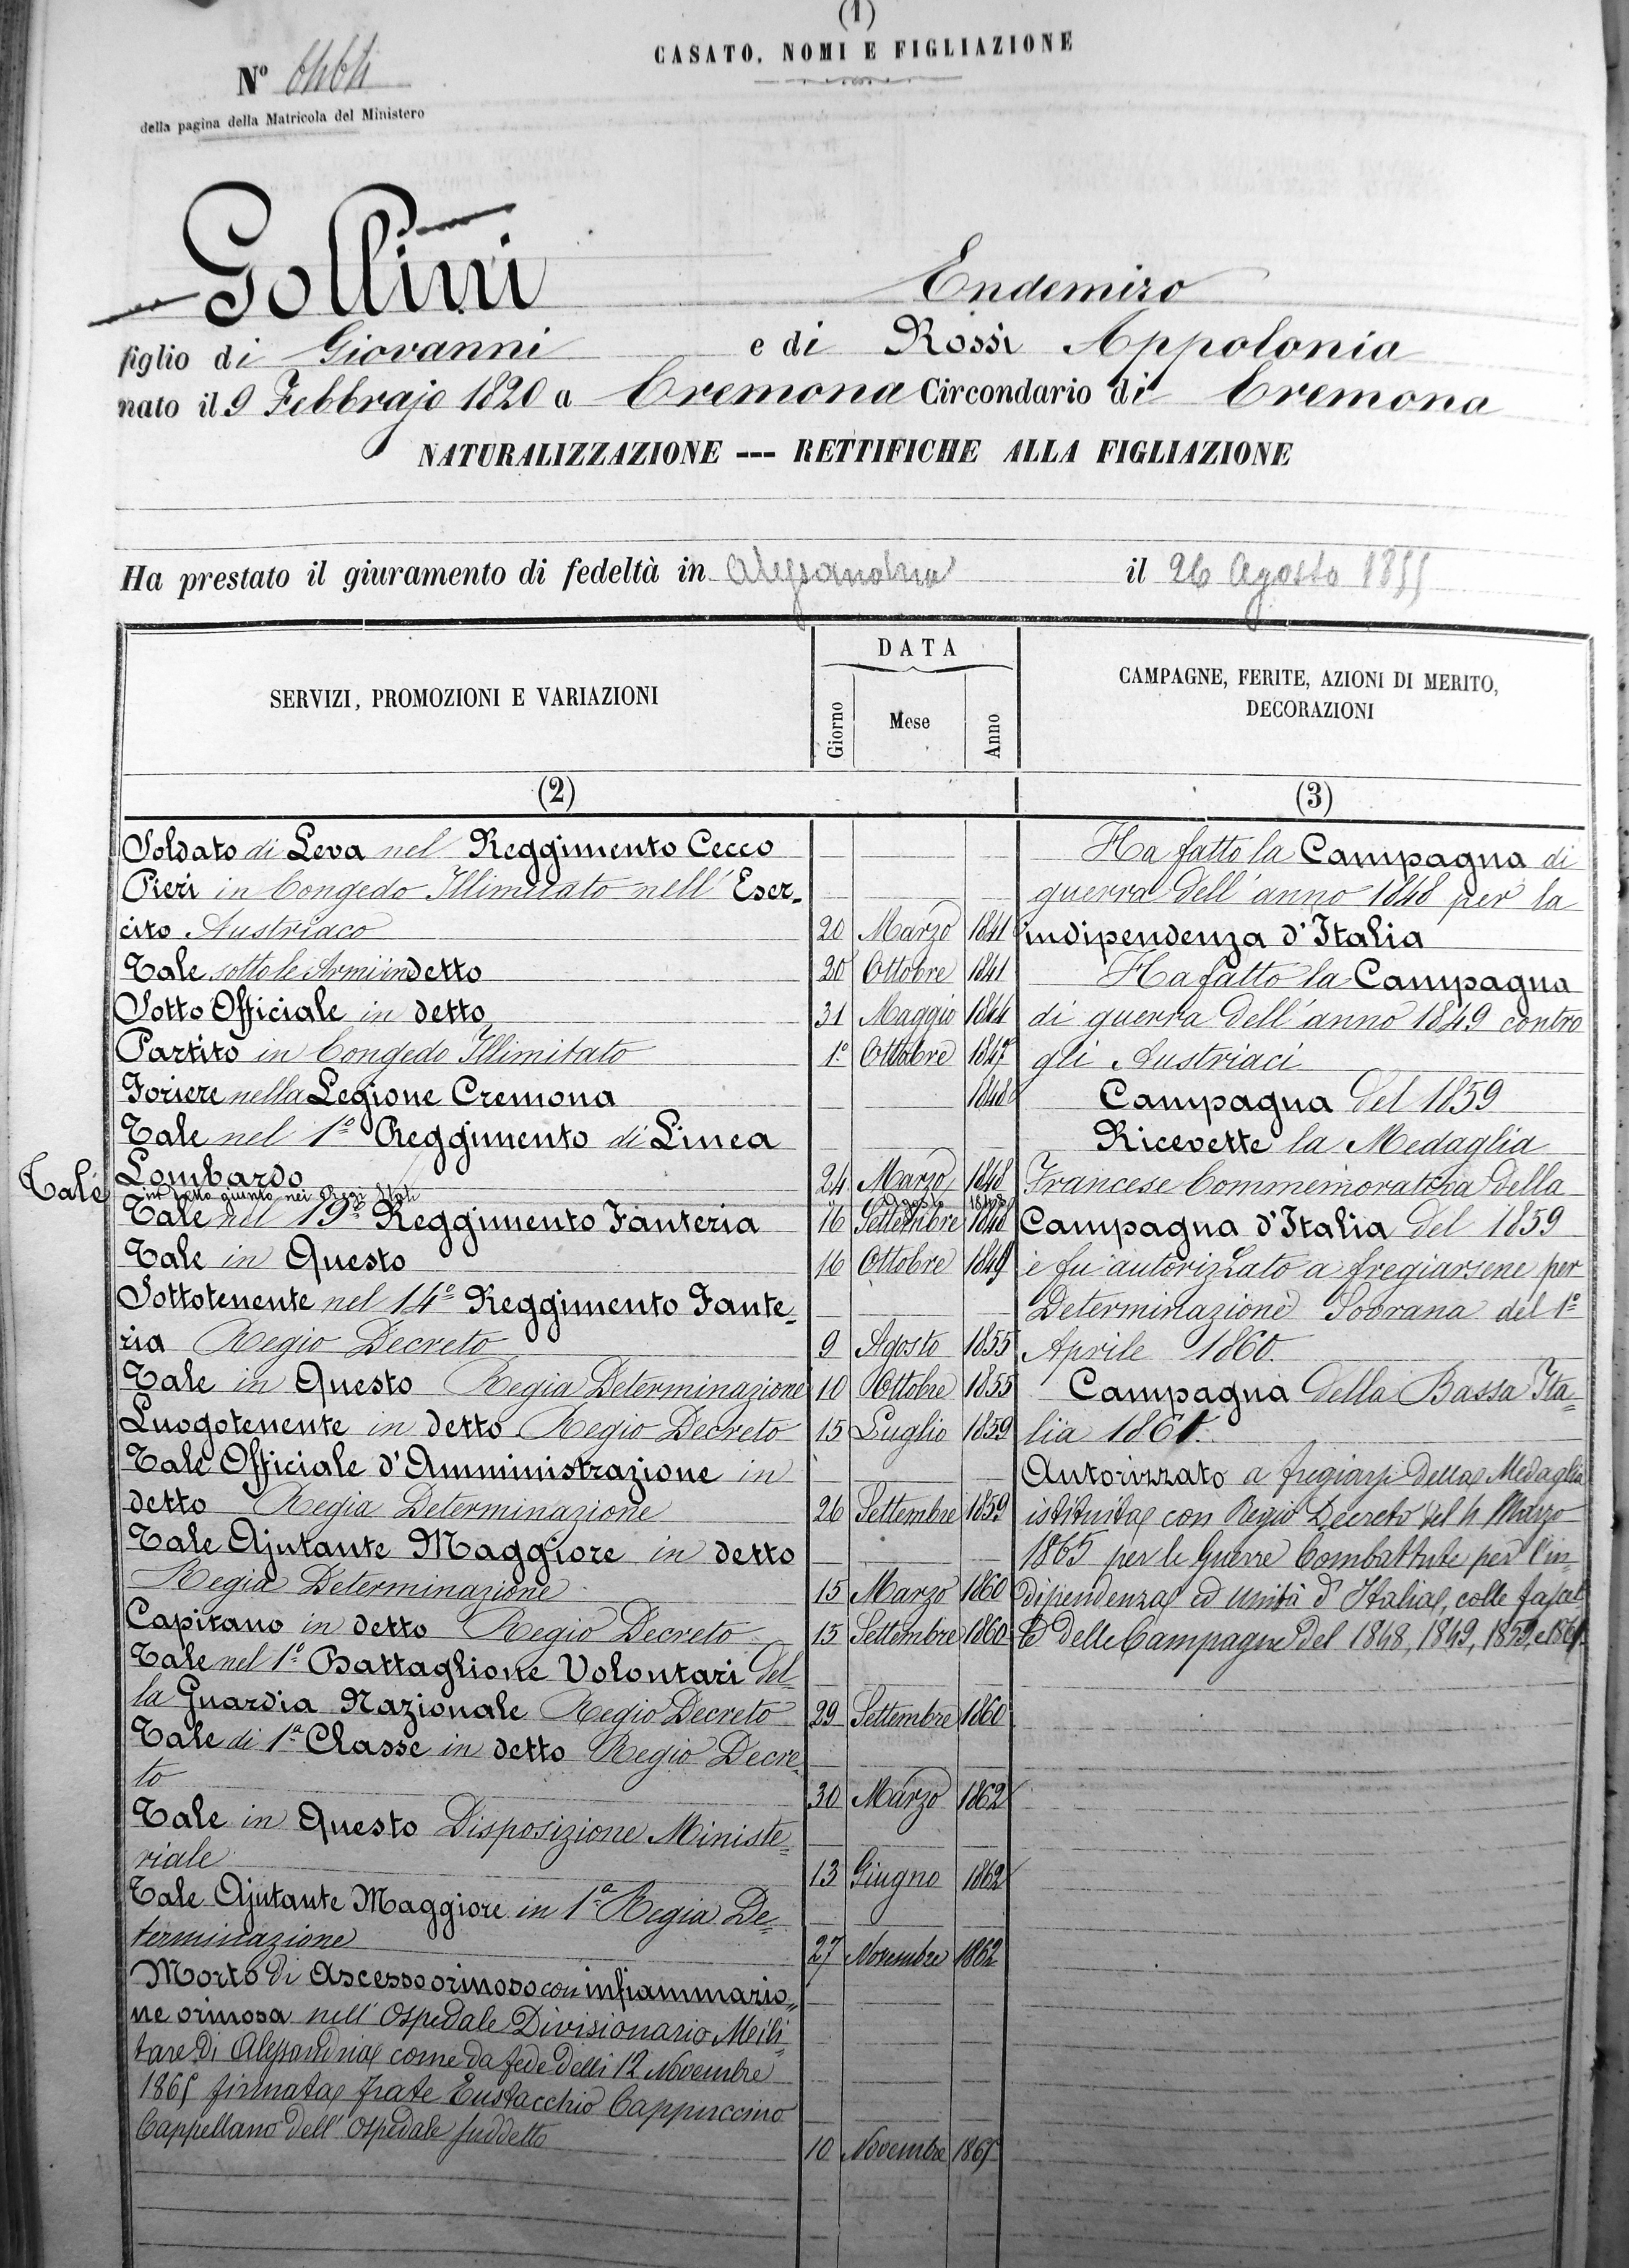 (1)
CASATO, NOMI E FIGLIAZIONE
N° 6464
della pagina della Matricola del Ministero
Gollini Endemiro
figlio di Giovanni e di Rossi Appolonia
nato il 9 Febbrajo 1820 a Cremona Circondario di Cremona
NATURALIZZAZIONE --- RETTIFICHE ALLA FIGLIAZIONE
Ha prestato il giuramento di fedeltà in Alessandria il 26 Agosto 1855
SERVIZI, PROMOZIONI E VARIAZIONI
DATA
Giorno
Mese
Anno
CAMPAGNE, FERITE, AZIONI DI MERITO,
DECORAZIONI
(2)
(3)
Soldato di Leva nel Reggimento Cecco
Pieri in Congedo Illimitato nell' Eser-
cito Austriaco 20 Marzo 1841
Tale sotto le Armi in detto 20 Ottobre 1841
Sotto Officiale in detto 31 Maggio 1844
Partito in Congedo Illimitato 1° Ottobre 1847
Foriere nella Legione Cremona 1848
Tale nel 1° Reggimento di Linea
Lombardo 24 Marzo 1848
Tale in detto giunto nei Regi Stati Agosto 1848
Tale nel 19° Reggimento Fanteria 16 Settembre 1848
Tale in Questo 16 Ottobre 1849
Sottotenente nel 14° Reggimento Fante-
ria Regio Decreto 9 Agosto 1855
Tale in Questo Regia Determinazione 10 Ottobre 1855
Luogotenente in detto Regio Decreto 15 Luglio 1859
Tale Officiale d'Amministrazione in
detto Regia Determinazione 26 Settembre 1859
Tale Ajutante Maggiore in detto
Regia Determinazione 15 Marzo 1860
Capitano in detto Regio Decreto 15 Settembre 1860
Tale nel 1° Battaglione Volontari del-
la Guardia Nazionale Regio Decreto 29 Settembre 1860
Tale di 1ª Classe in detto Regio Decre-
to 30 Marzo 1862
Tale in Questo Disposizione Ministe-
riale 13 Giugno 1862
Tale Ajutante Maggiore in 1ª Regia De-
terminazione 27 Novembre 1862
Morto di Ascesso orinoso con infiammazio-
ne orinosa nell' Ospedale Divisionario Mili-
tare di Alessandria come da fede delli 12 Novembre
1865 firmata frate Eustacchio Cappuccino
Cappellano dell' Ospedale suddetto 10 Novembre 1865
Ha fatto la Campagna di
guerra dell' anno 1848 per la
indipendenza d'Italia
Ha fatto la Campagna
di guerra dell' anno 1849 contro
gli Austriaci
Campagna del 1859
Ricevette la Medaglia
Francese Commemorativa della
Campagna d'Italia del 1859
e fu autorizzato a fregiarsene per
Determinazione Sovrana del 1°
Aprile 1860.
Campagna della Bassa Ita-
lia 1861.
Autorizzato a fregiarsi della Medaglia
istituita con Regio Decreto del 4 Marzo
1865 per le Guerre Combattute per l'in-
dipendenza ed unità d' Italia, colle fascet-
te delle Campagne del 1848, 1849, 1859, e 1861.